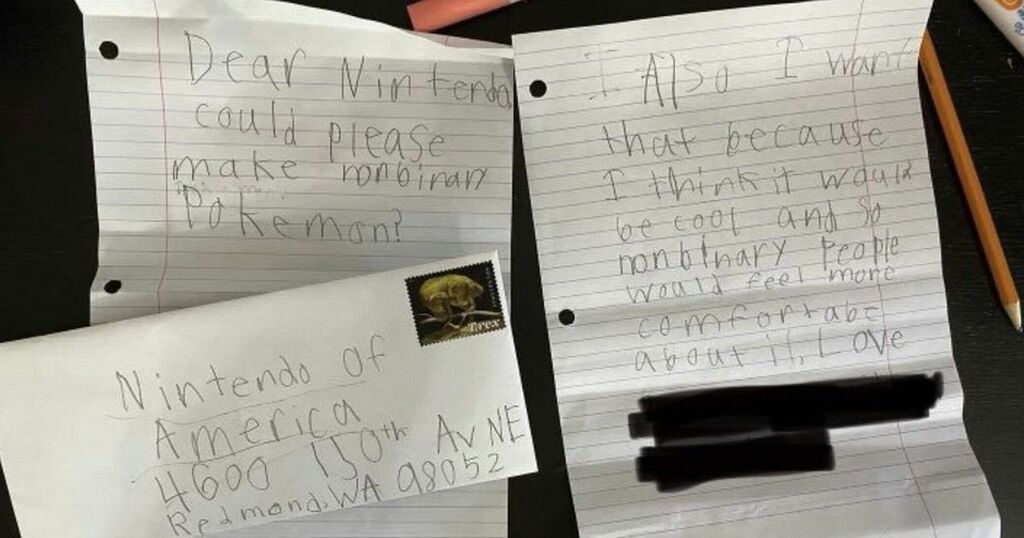 Dear Nintendo
could please
make nonbinary
Pokémon?
I Also I want
that because
I think it would
be cool and so
nonbinary people
would feel more
comfortabe
about it, Love
T.rex
Nintendo of
America
4600 150th Av NE
Redmond, WA 98052